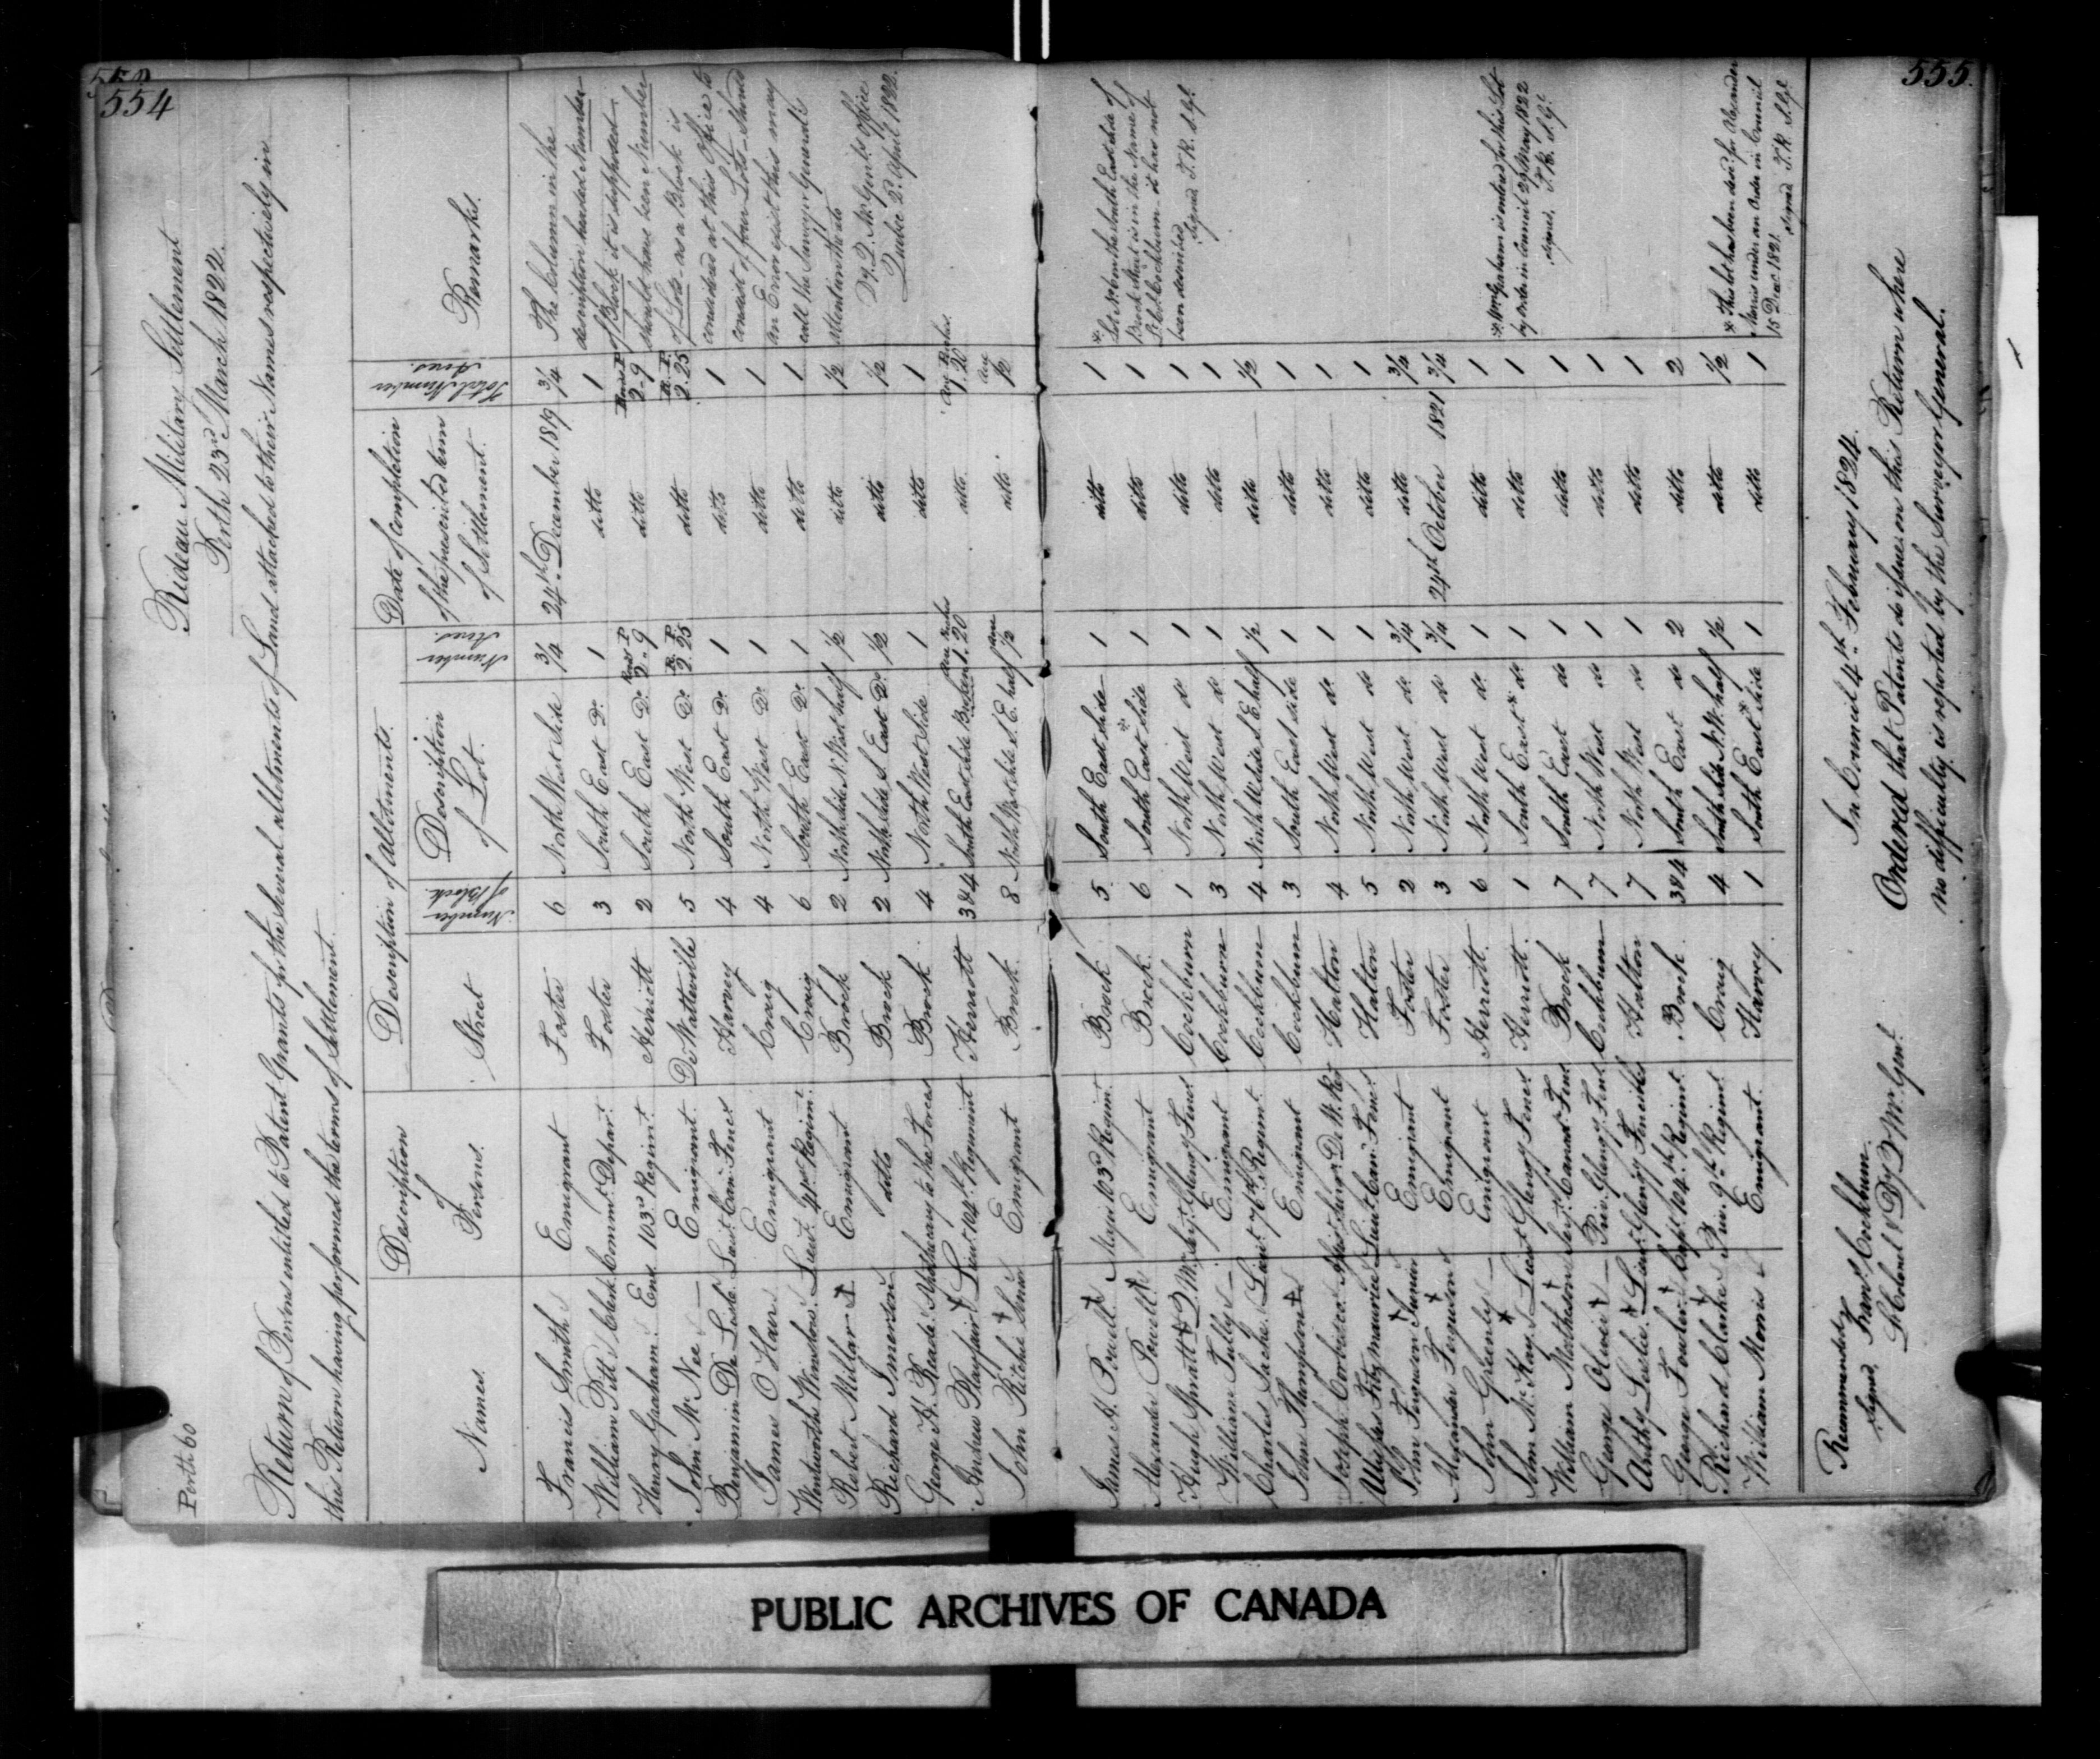 554
Rideau Military Settlement
Perth 23rd March 1822.
Perth 60
Return of Persons entitled to Patent Grants for the several allotments of Land attached to their Names respectively in
this Return having performed the terms of Settlement.
Names. Description of Persons. Description of Allotments. Date of Completion of the prescribed term of Settlement. Total Number Acres. Remarks.
Street Number of Block Description of Lot. Number Acres.
Francis Smith Emigrant Foster 6 North West Side 3/4 24th December 1819 3/4
William Pitt Clerk Commt. Depart. Foster 3 South East Do. 1 ditto 1
Henry Graham Ens. 103rd Regimt. Herriott 2 South East Do. Roods P. 2-9 ditto Roods P. 2-9
John McNee Emigrant. De Watteville 5 North West Do. R. P. 2.25 ditto R. P. 2.25
Benjamin De Lisle Lieut. Can. Fencs Harvey 4 South East Do. 1 ditto 1
James O'Hare Emigrant Craig 4 North West Do. 1 ditto 1
Wentworth Winslow Lieut. 41st Regimt. Craig 6 South East Do. 1 ditto 1
Robert Millar Emigrant Brock 2 North side N West half 1/2 ditto 1/2
Richard Jmerson ditto Brock 2 North side S East Do. 1/2 ditto 1/2
George H. Reade Apothecary to the Forces Brock 4 North West Side 1 ditto 1
Andrew Playfair Lieut. 104th Regiment Herriott 3&4 South East side 1.20 ditto 1.20
John Ritchie Senior Emigrant Brock 8 North West side S. E. half 1/2 ditto 1/2
The Column in the
description headed Number
of Block it is supposed
should have been Number
of Lots - as a Block is
considered at this Office to
consist of four Lots - Should
an Error exist this may
call the Surveyor General's
attention thereto
Dy. Q. Mr. Genl's Office
Quebec 2d. April 1822.
555.
James A. Powell Major 103rd Regimt. Brock 5 South East side 1 ditto 1
Alexander Powell Emigrant Brock. 6 South East * Side 1 ditto 1
Hugh Spratt Q. M. Sergt. Glengy. Fencs Cockburn 1 North West do 1 ditto 1
William Tully Emigrant Cockburn 3 North West do. 1 ditto 1
Charles Sache Lieut. 76th Regimt. Cockburn 4 North W. side S. E. half 1/2 ditto 1/2
John Thompson Emigrant Cockburn 3 South East side 1 ditto 1
Joseph Corbierre De W. Regt Halton 4 North West do. 1 ditto 1
Ulysses Fitzmaurice Lieut. Can. Fencs Halton 5 North West do 1 ditto 1
John Ferguson Junior Emigrant Foster 2 North West do. 3/4 ditto 3/4
Alexander Ferguson Emigrant Foster 3 North West do 3/4 24th October 1821 3/4
John Greenly Emigrant Herriott. 6 North West do. 1 ditto 1
John McKay Lieut. Glengy. Fencs Herriott. 1 South East * do 1 ditto 1
William Matheson Sergt. Canadn. Fencs Brock 7 South East do 1 ditto 1
George Oliver Priv. Glengy. Fencs Cockburn 7 North West do 1 ditto 1
Anthy. Leslie Lieut. Glengy. Fencibles Halton 7 North West do 1 ditto 1
George Fowler Capt. 104th Regimt. Brock 3&4 South East do 2 ditto 2
Richard Clarke Priv. 9th Regimt Craig 4 South side N. W. half 1/2 ditto 1/2
William Morris Emigrant. Harvey. 1 South East * side 1 ditto 1
* Lot No. 6 on the South East side of
Brock Street is in the Name of
Lt. Col Cockburn - it has not
been described
Signed T. R. S. Gl.
* Wm. Graham is entered for this Lot
by Order in Council 29 May 1822
signed, T. R. S. Gl.
* This lot has been desd. for Alexander
Morris under an Order in Council
15 Decr 1821. signed T. R. S. Gl.
Recommended
Signed, Frans. Cockburn
Lt. Colonel & Dy. Q. Mr. Genl.
In Council 4th February 1824.
Ordered that Patents do issue on this Return where
no difficulty is reported by the Surveyor General.
PUBLIC ARCHIVES OF CANADA